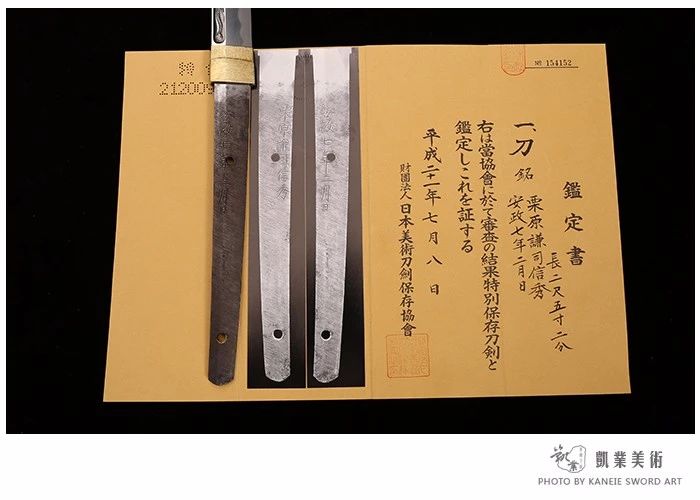 鑑定書
一、刀 銘 栗原謙司信秀
安政七年二月日
長二尺五寸二分
右は當協會に於て審査の結果特別保存刀剣と
鑑定しこれを証する
平成二十一年七月八日
財團法人 日本美術刀剣保存協會
№ 154152
212009
安政七年二月日
凱業美術
PHOTO BY KANEIE SWORD ART